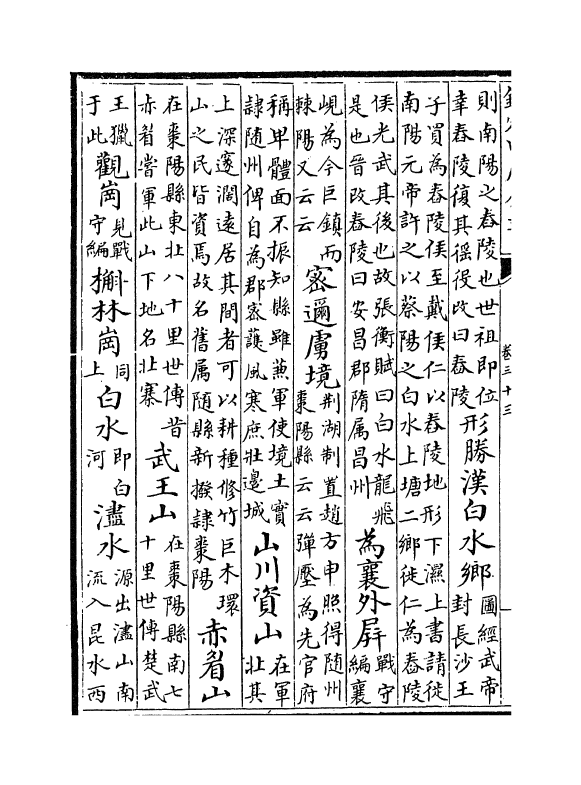 卷三十三
則南陽之舂陵也世祖即位幸舂陵復其徭役改曰舂陵形勝漢白水鄉圖經武帝封長沙王
子買為舂陵侯至戴侯仁以舂陵地形下濕上書請徙南陽元帝許之以蔡陽之白水上塘二鄉徙仁為舂陵
侯光武其後也故張衡賦曰白水龍飛是也晉改舂陵曰安昌郡隋属昌州為襄外屏戰守編襄
峴為今巨鎮而棘陽又云云宻邇虜境荆湖制置趙方申照得随州棗陽縣云云彈壓為先官府
稱卑體面不振知縣雖兼軍使境土實隷随州俾自為郡宻䕶風寒庶壯邊城山川資山在軍北其
上深邃濶遠居其間者可以耕種修竹巨木環山之民皆資焉故名舊属随縣新撥隷棗陽赤眉山
在棗陽縣東北八十里世傳昔赤眉嘗軍此山下地名北寨武王山在棗陽縣南七十里世傳楚武
王獵于此觀崗見戰守編槲林崗同上白水即白河濜水源出濜山南流入昆水西